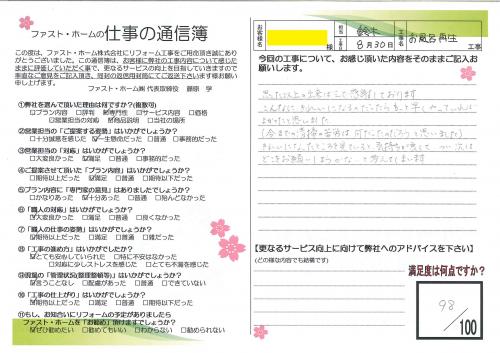 ファスト・ホームの仕事の通信簿
この度は、ファスト・ホーム株式会社にリフォーム工事をご用命頂き誠にあり
がとうございました。この通信簿は、お客様に弊社の工事内容について感じた
ままに評価していただく事で、更なるサービスの向上を目指していきますので
率直なご意見をご記入頂き、同封の返信用封筒にてご返送下さいます様お願い
申し上げます。
ファスト・ホーム㈱ 代表取締役 藤原 学
①弊社を選んで頂いた理由は何ですか?(複数可)
□プラン内容 □評判 ☑専門性 □サービス内容 □価格
□営業担当の対応 □商品説明 □当社の場所
②営業担当の「ご提案する姿勢」はいかがでしょうか?
□十分誠意を感じた ☑一生懸命だった □普通 □事務的だった
③営業担当の「対応」はいかがでしょうか?
□大変良かった ☑満足 □普通 □事務的だった
④ご提案させて頂いた「プラン内容」はいかがでしょうか?
□期待以上だった ☑満足 □普通 □期待以下だった
⑤プラン内容に「専門家の意見」はありましたでしょうか?
□かなりあった ☑十分あった □普通 □殆どなかった
⑥「職人の対応」はいかがでしょうか?
☑大変良かった □満足 □普通 □良くなかった
⑦「職人の仕事の姿勢」はいかがでしょうか?
☑期待以上だった □満足 □普通 □雑だった
⑧「工事の進め方」はいかがでしたか?
☑とても安心していられた □特に不安はなかった
□対応に少しストレスを感じた □とても不満を感じた
⑨現場の「管理状況(整理整頓等)」はいかがでしょうか?
☑言うことなし □配慮があった □普通 □できていない
⑩「工事の仕上がり」はいかがでしょうか?
☑期待以上だった □満足 □普通 □期待以下だった
⑪もし、お知り合いにリフォームの予定がありましたら
ファスト・ホームを「お勧め」頂けますでしょうか?
☑ぜひ勧めたい □勧めてもいい □わからない □勧められない
お客様名 様 工事日 8月30日 工事名 お風呂再生
今回の工事について、お感じ頂いた内容をそのままご記入お
願いします。
思った以上の出来はえで感謝しております
こんなにきれいになるのでしたらもっと早くやっていれば
よかったと思いました
(今までの清掃の苦労は何だったのだろうと思いました)
きれいになったところを見ていると気持ちが良くて、次は
どこをお願いしようかな…と考えてしまいます
【更なるサービス向上に向けて弊社へのアドバイスを下さい】
(どの様な内容でも結構です)
満足度は何点ですか?
98
/100